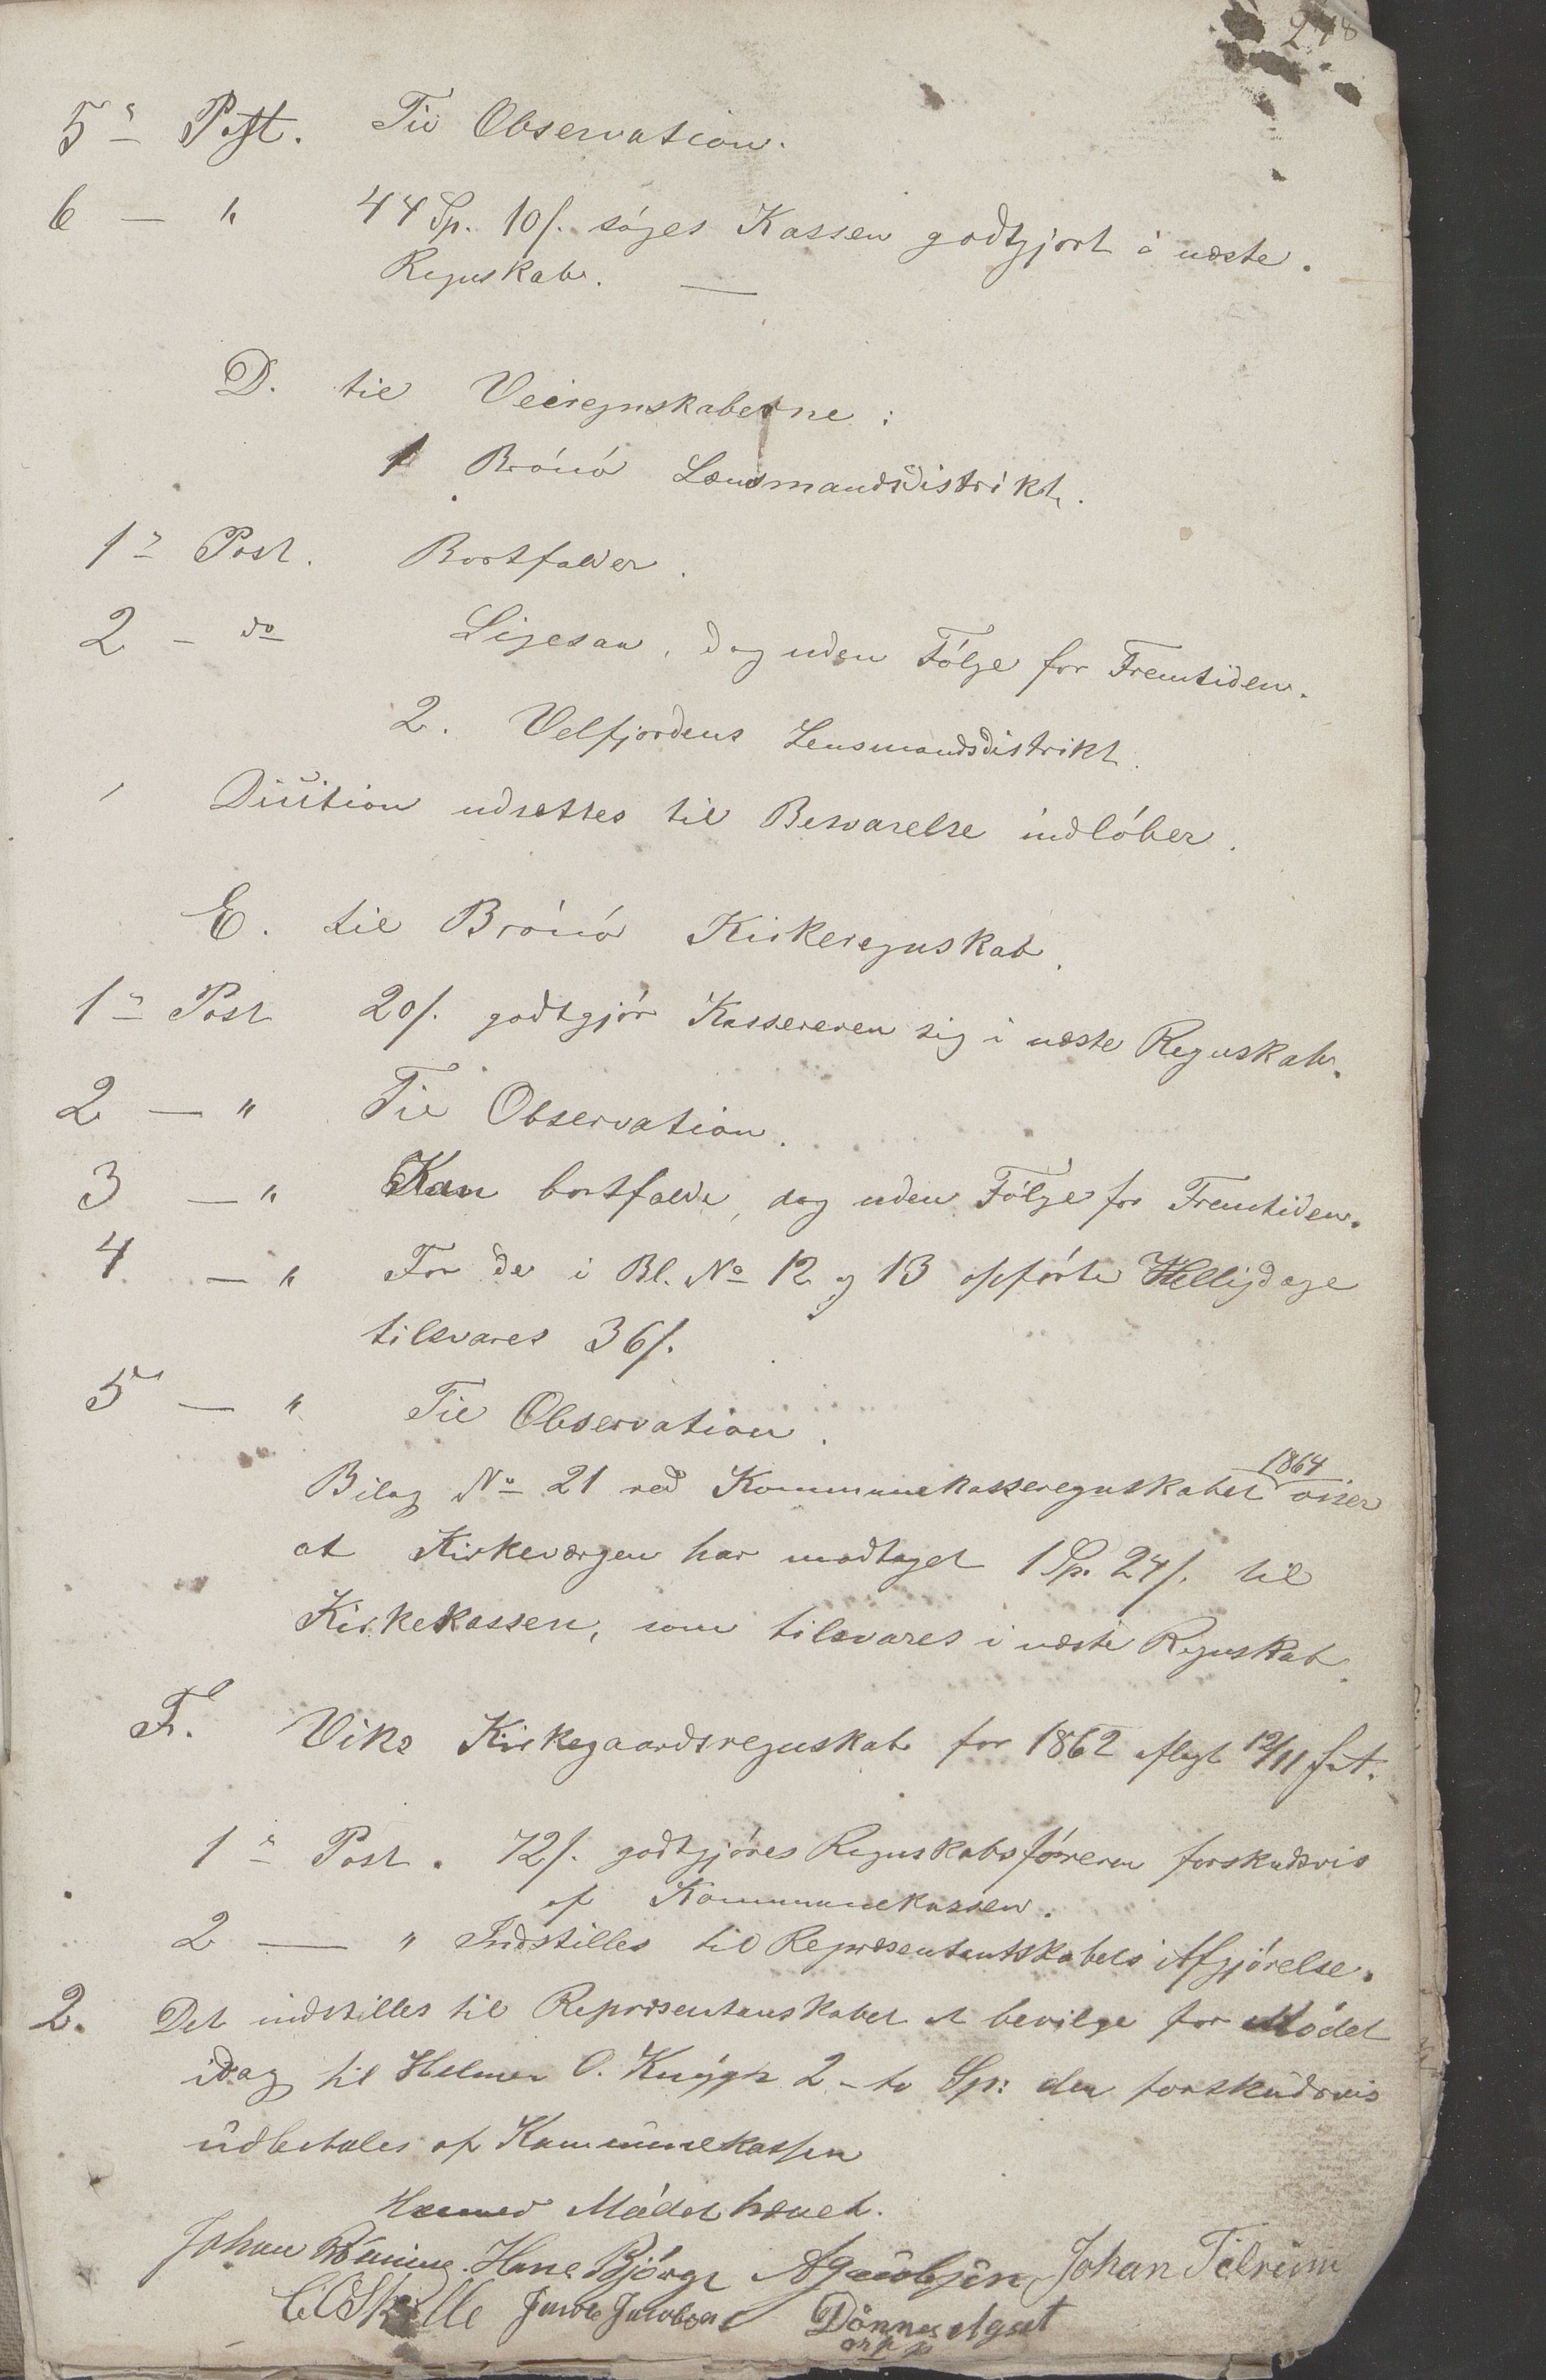 248
5te Post. Til Observation.
6 — " 44 Sp. 10 s. søges Kassen godtgjort i næste
Regnskab. —
D. til Veiregnskaberne:
1 Brönö Lensmandsdistrikt.
1ste Post. Bortfalder.
2 - do Ligesaa, dog uden Følge for Fremtiden.
2. Velfjordens Lensmandsdistrikt.
udsættes til Besvarelse indløber.
E. til Brönö Kirkeregnskab.
1ste Post 20 s. godtgjør Kassereren sig i næste Regnskab.
2 — " Til Observation.
3 — " Kan bortfalde, dog uden Følge for Fremtiden.
4 — " For de i Bl. No 12 og 13 opførte Helligdage
tilsvares 36 s.
5 — " Til Observation.
Bilag No 21 ved Kommunekasseregnskabet 1864 viser
at Kirkeværgen har modtaget 1 Sp. 24 s. til
Kirkekassen, som tilsvares i næste Regnskab.
F. Viks Kirkegaardsregnskab for 1862 aflagt 12/11 f. A.
1ste Post. 72 s. godtgjøres Regnskabsføreren forskudsvis
af Kommunekassen.
2 — " Indstilles til Repræsentantskabets Afgjørelse.
2. Det indstilles til Repræsentanskabet at bevilge for Mødet
idag til Helmer O. 2 - to Sp: der forskudsvis
udbetales af Kommunekassen
Hermed Mødet hævet.
Johan Hans Bjørge AJacobsen Johan Tilrem
Jacob Jacobsen Dönnes Agset